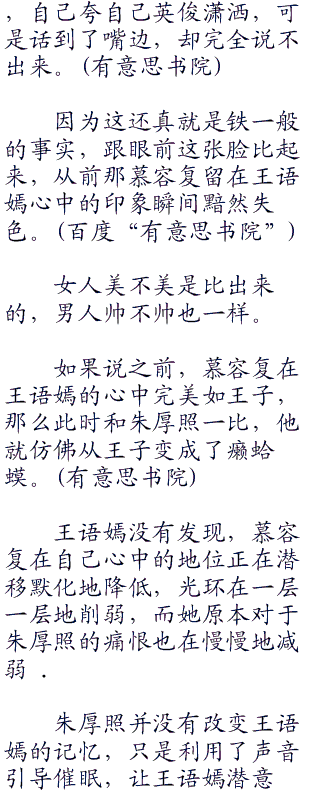 ，自己夸自己英俊潇洒，可
是话到了嘴边，却完全说不
出来。(有意思书院)
因为这还真就是铁一般
的事实，跟眼前这张脸比起
来，从前那慕容复留在王语
嫣心中的印象瞬间黯然失
色。(百度“有意思书院”)
女人美不美是比出来
的，男人帅不帅也一样。
如果说之前，慕容复在
王语嫣的心中完美如王子，
那么此时和朱厚照一比，他
就仿佛从王子变成了癞蛤
蟆。(有意思书院)
王语嫣没有发现，慕容
复在自己心中的地位正在潜
移默化地降低，光环在一层
一层地削弱，而她原本对于
朱厚照的痛恨也在慢慢地减
弱．
朱厚照并没有改变王语
嫣的记忆，只是利用了声音
引导催眠，让王语嫣潜意